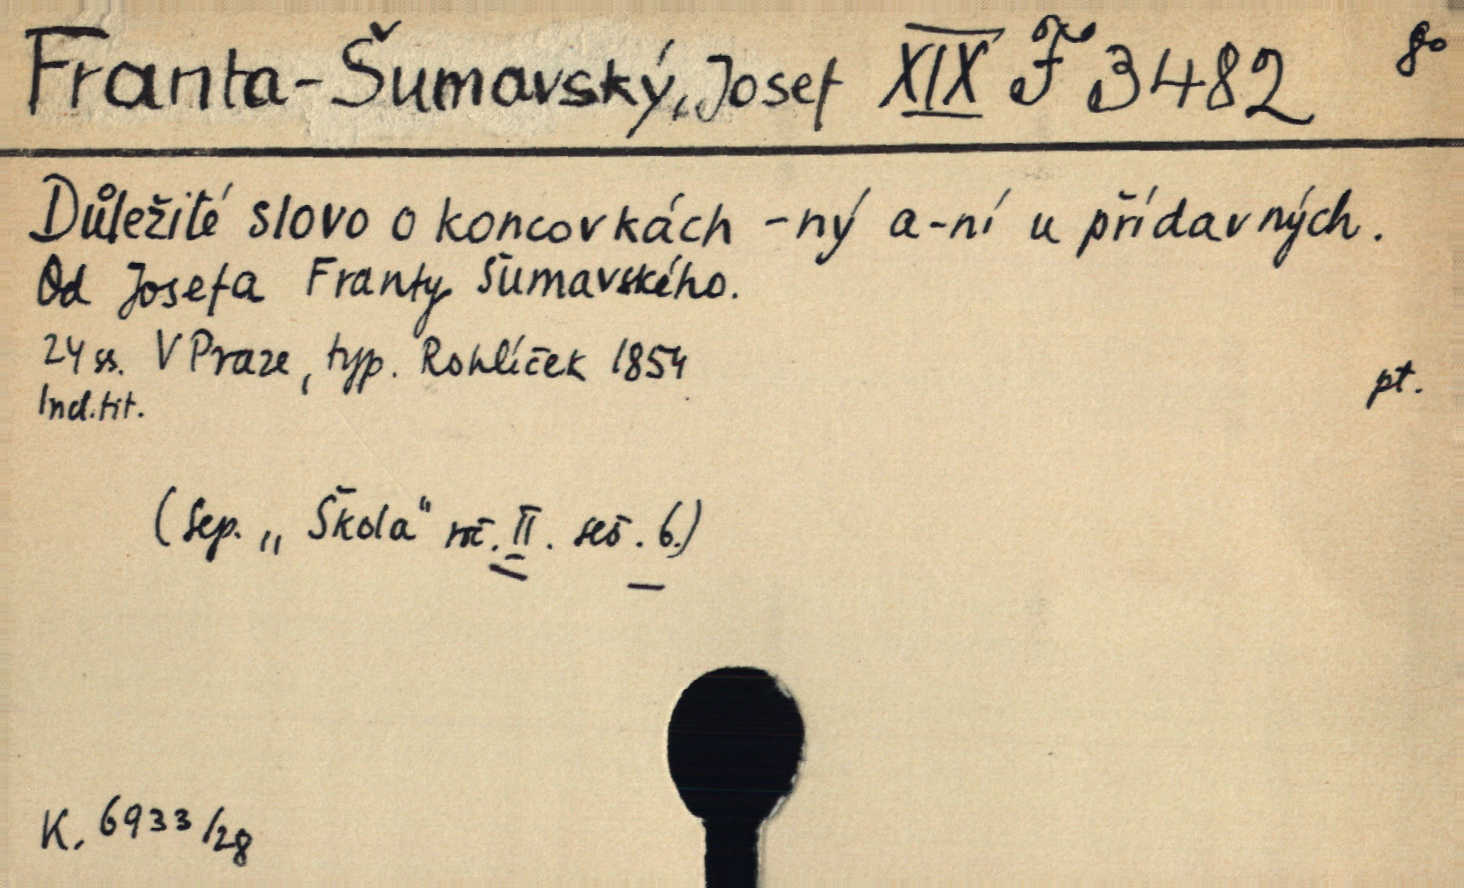 Franta-Šumavský, Josef XIX F 3482 8°
Důležité slovo o koncovkách -ný a -ní u přídavných.
Od Josefa Franty Šumavského.
24 ss. V Praze, typ. Rohlíček 1854
Incl. tit.
pt.
(Sep. „Škola" roč. II. seš. 6.)
K. 6933/28